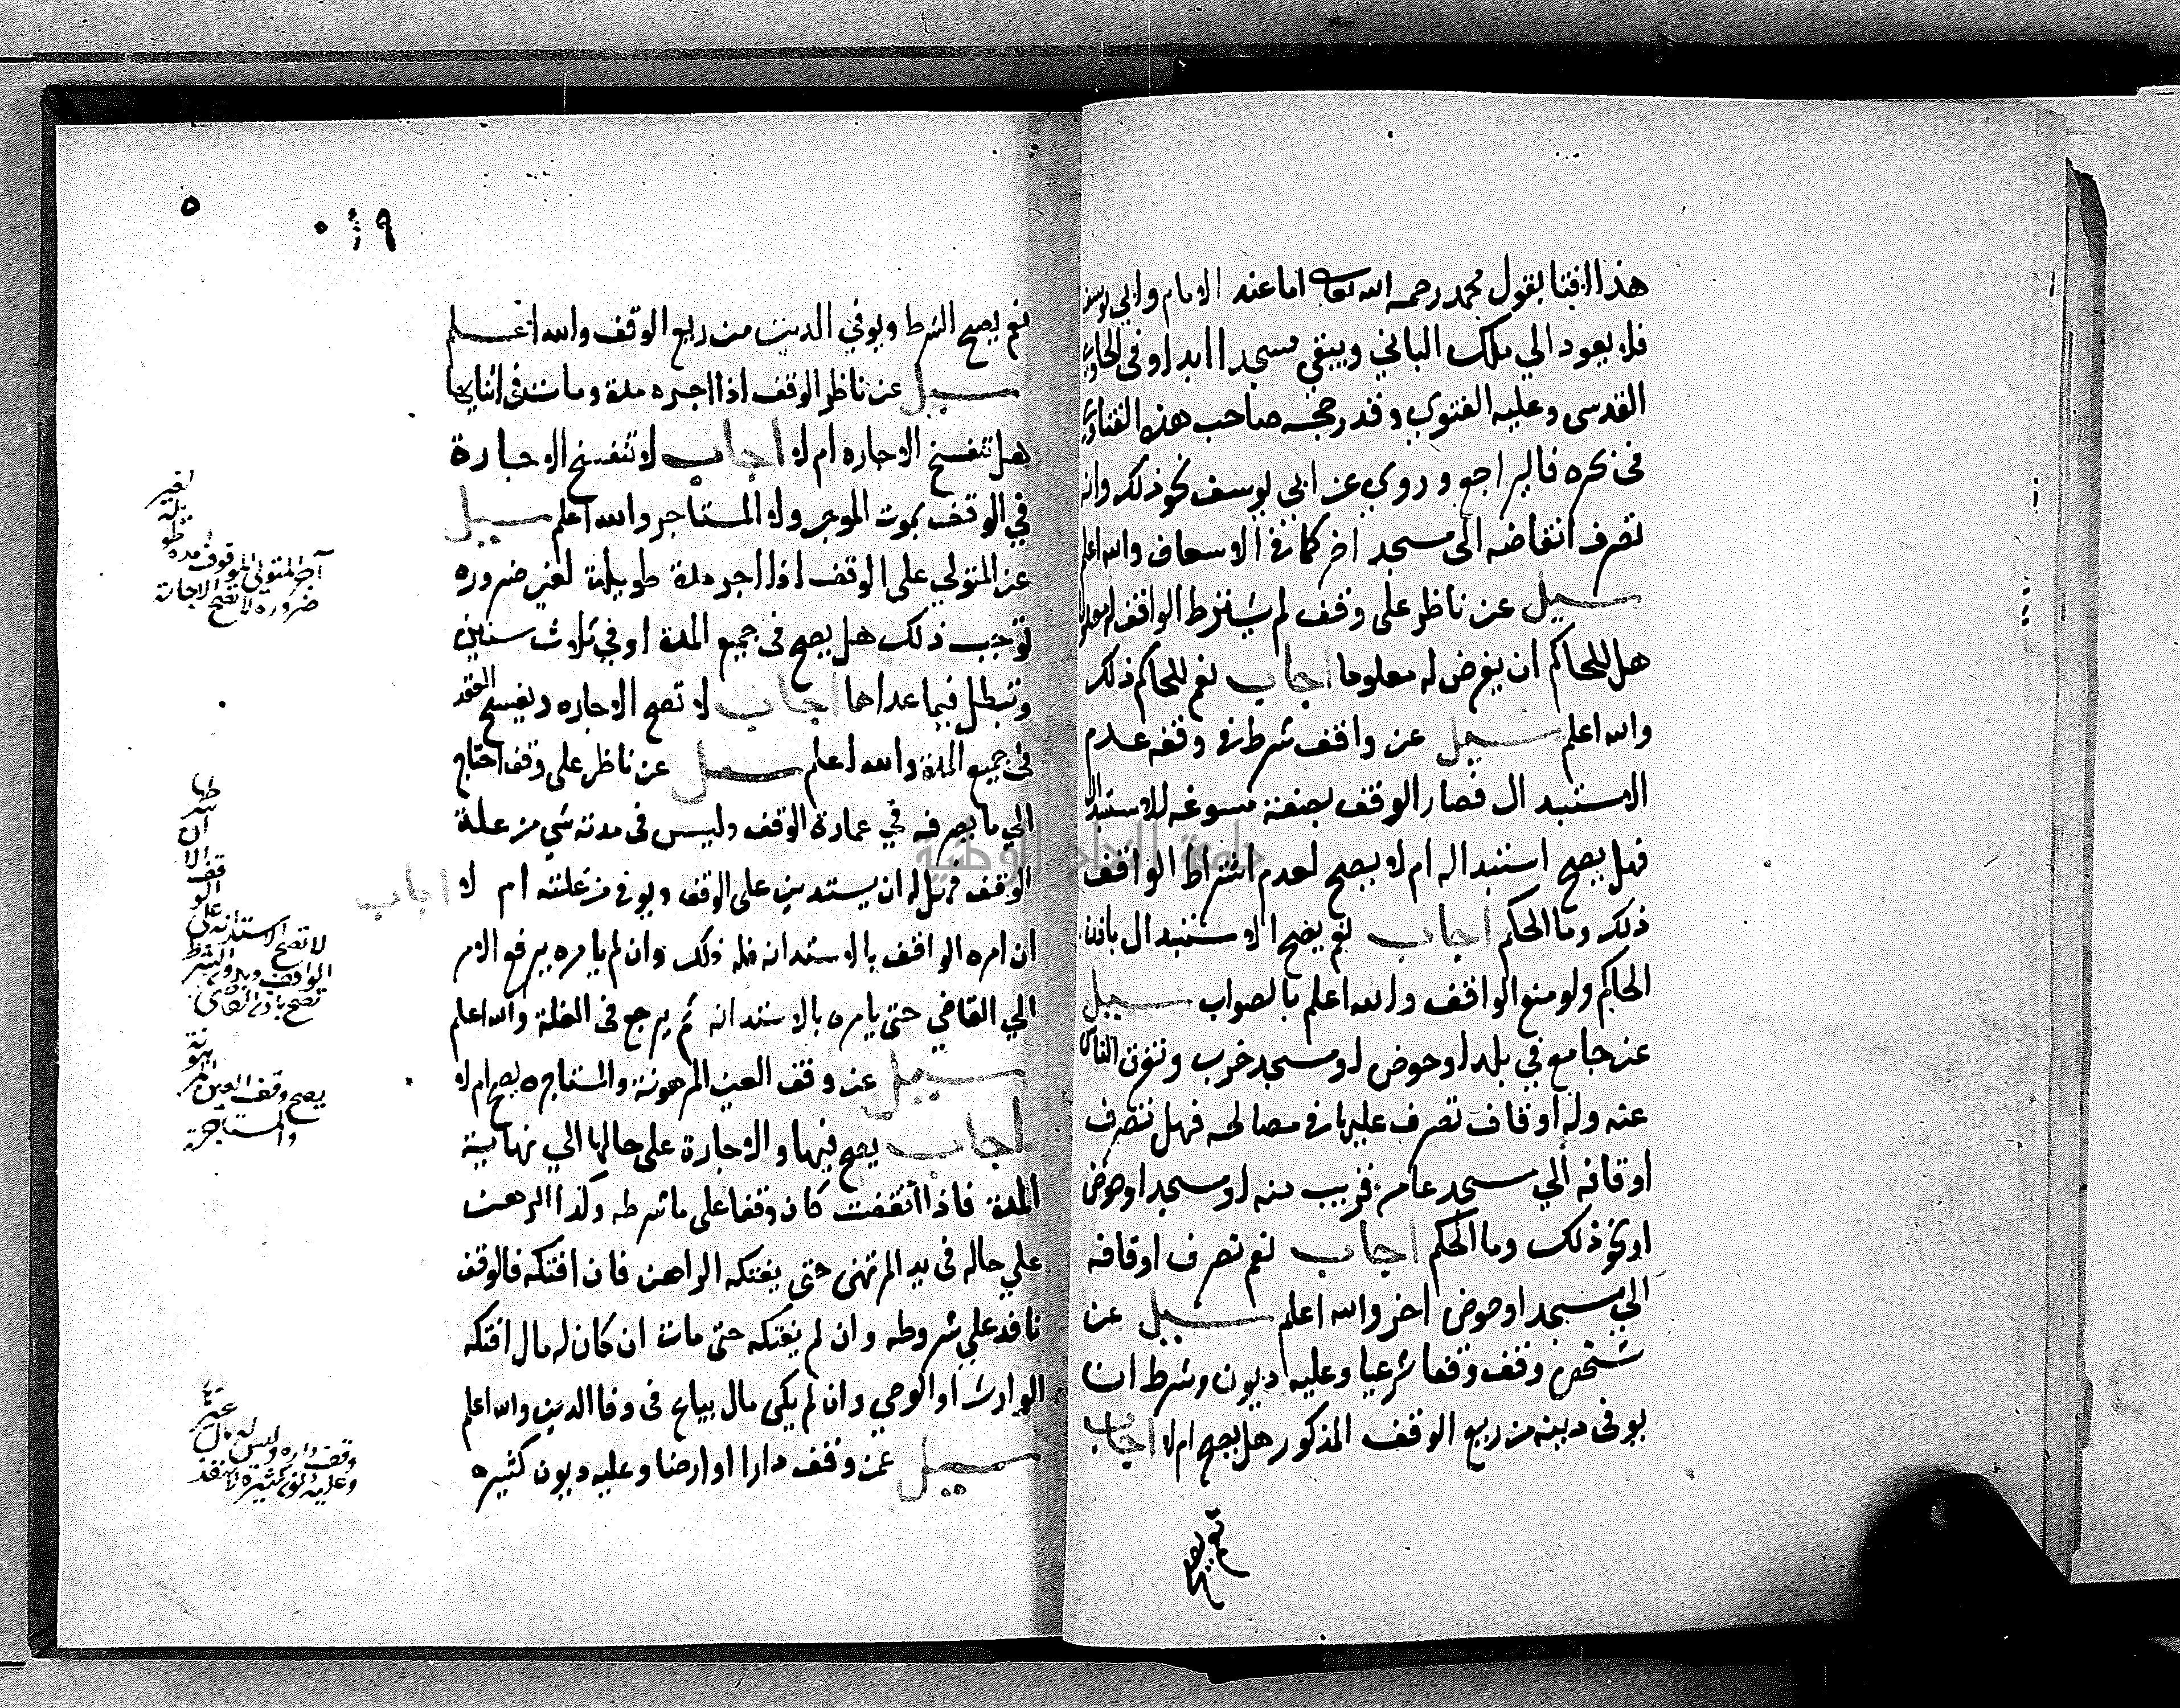 هذا الافتا بقول محمد رحمه الله تعا اما عند الامام وابي يوسف
فلا يعود الي ملك الباني ويبقي مسجدا ابدا وفي الحاوي
القدسى وعليه الفتوي وقد رجحه صاحب هذه الفتاوي
فى بحره فاليراجع وروي عن ابى يوسف نحو ذلك وانه
تصرف انقاضه الى مسجد اخر كما في الاسعاف والله اعلم
سيل عن ناظر على وقف لم يشترط الواقف له معلوما
هل للحاكم ان يفرض له معلوما اجاب نعم للحاكم ذلك
والله اعلم سيل عن واقف شرط في وقفه عدم
الاستبدال فصار الوقف بصفة مسوغه للاستبدال
فهل يصح استبداله ام لا يصح لعدم اشتراط الواقف
ذلك وما الحكم اجاب نعم يصح الاستبدال باذن
الحاكم ولو منع الواقف والله اعلم بالصواب سيل
عن جامع في بلد او حوض او مسجد خرب وتفرق الناس
عنه وله اوقاف تصرف عليها في مصالحه فهل تصرف
اوقافه الي مسجد عامر قريب منه او مسجد او حوض
او نحو ذلك وما الحكم اجاب نعم تصرف اوقافه
الي مسجد او حوض اخر والله اعلم سيل عن
شخص وقف وقفا شرعيا وعليه ديون وشرط ان
يوفى دينه من ريع الوقف المذكور هل يصح ام لا اجاب
نعم يصح
٥
نعم يصح الشرط ويوفي الدين من ريع الوقف والله اعلم
سيل عن ناظر الوقف اذا اجره مدة ومات في اثنايها
هل تنفسخ الاجاره ام لا اجاب لا تنفسخ الاجارة
في الوقف بموت الموجر ولا المستاجر والله اعلم سيل
عن المتولي على الوقف اذا اجر مدة طويلة لغير ضروره
توجب ذلك هل يصح فى جميع المدة او في ثلاث سنين
وتبطل فيما عداها اجاب لا تصح الاجاره ويفسخ العقد
فى جميع المدة والله اعلم سيل عن ناظر على وقف احتاج
الي ما يصرفه في عمارة الوقف وليس فى مدته شي من غلة
الوقف فهل له ان يستدين على الوقف ويوفى من غلته ام لا اجاب
ان امره الواقف بالاستدانه فله ذلك وان لم يامره يرفع الامر
الي القاضي حتى يامره بالاستدانه ثم يرجع فى الغلة والله اعلم
سيل عن وقف العين المرهونة والمستاجره يصح ام لا
اجاب يصح فيهما والاجارة على حالها الي نهاية
المدة فاذا انقضت كان وقفا على ما شرطه وكذا الرهن
علي حاله فى يد المرتهن حتى يفتكه الراهن فان افتكه فالوقف
نافد علي شروطه وان لم يفتكه حتى مات ان كان له مال افتكه
الوارث او الوصي وان لم يكن مال يباع فى وفا الدين والله اعلم
سيل عمن وقف دارا او ارضا وعليه ديون كثيره
آجر المتولي الموقوف مده طويلة لغير
ضروره لا تصح الاجارة
لا تصح الاستدانة على الوقف الا ان
الواقف وبدون الشرط
تصح باذن القاضي
يصح وقف العين المرهونة
والمستاجرة
وقف داره وليس له مال غيره
وعليه ديون كثيرة لا ينفذ